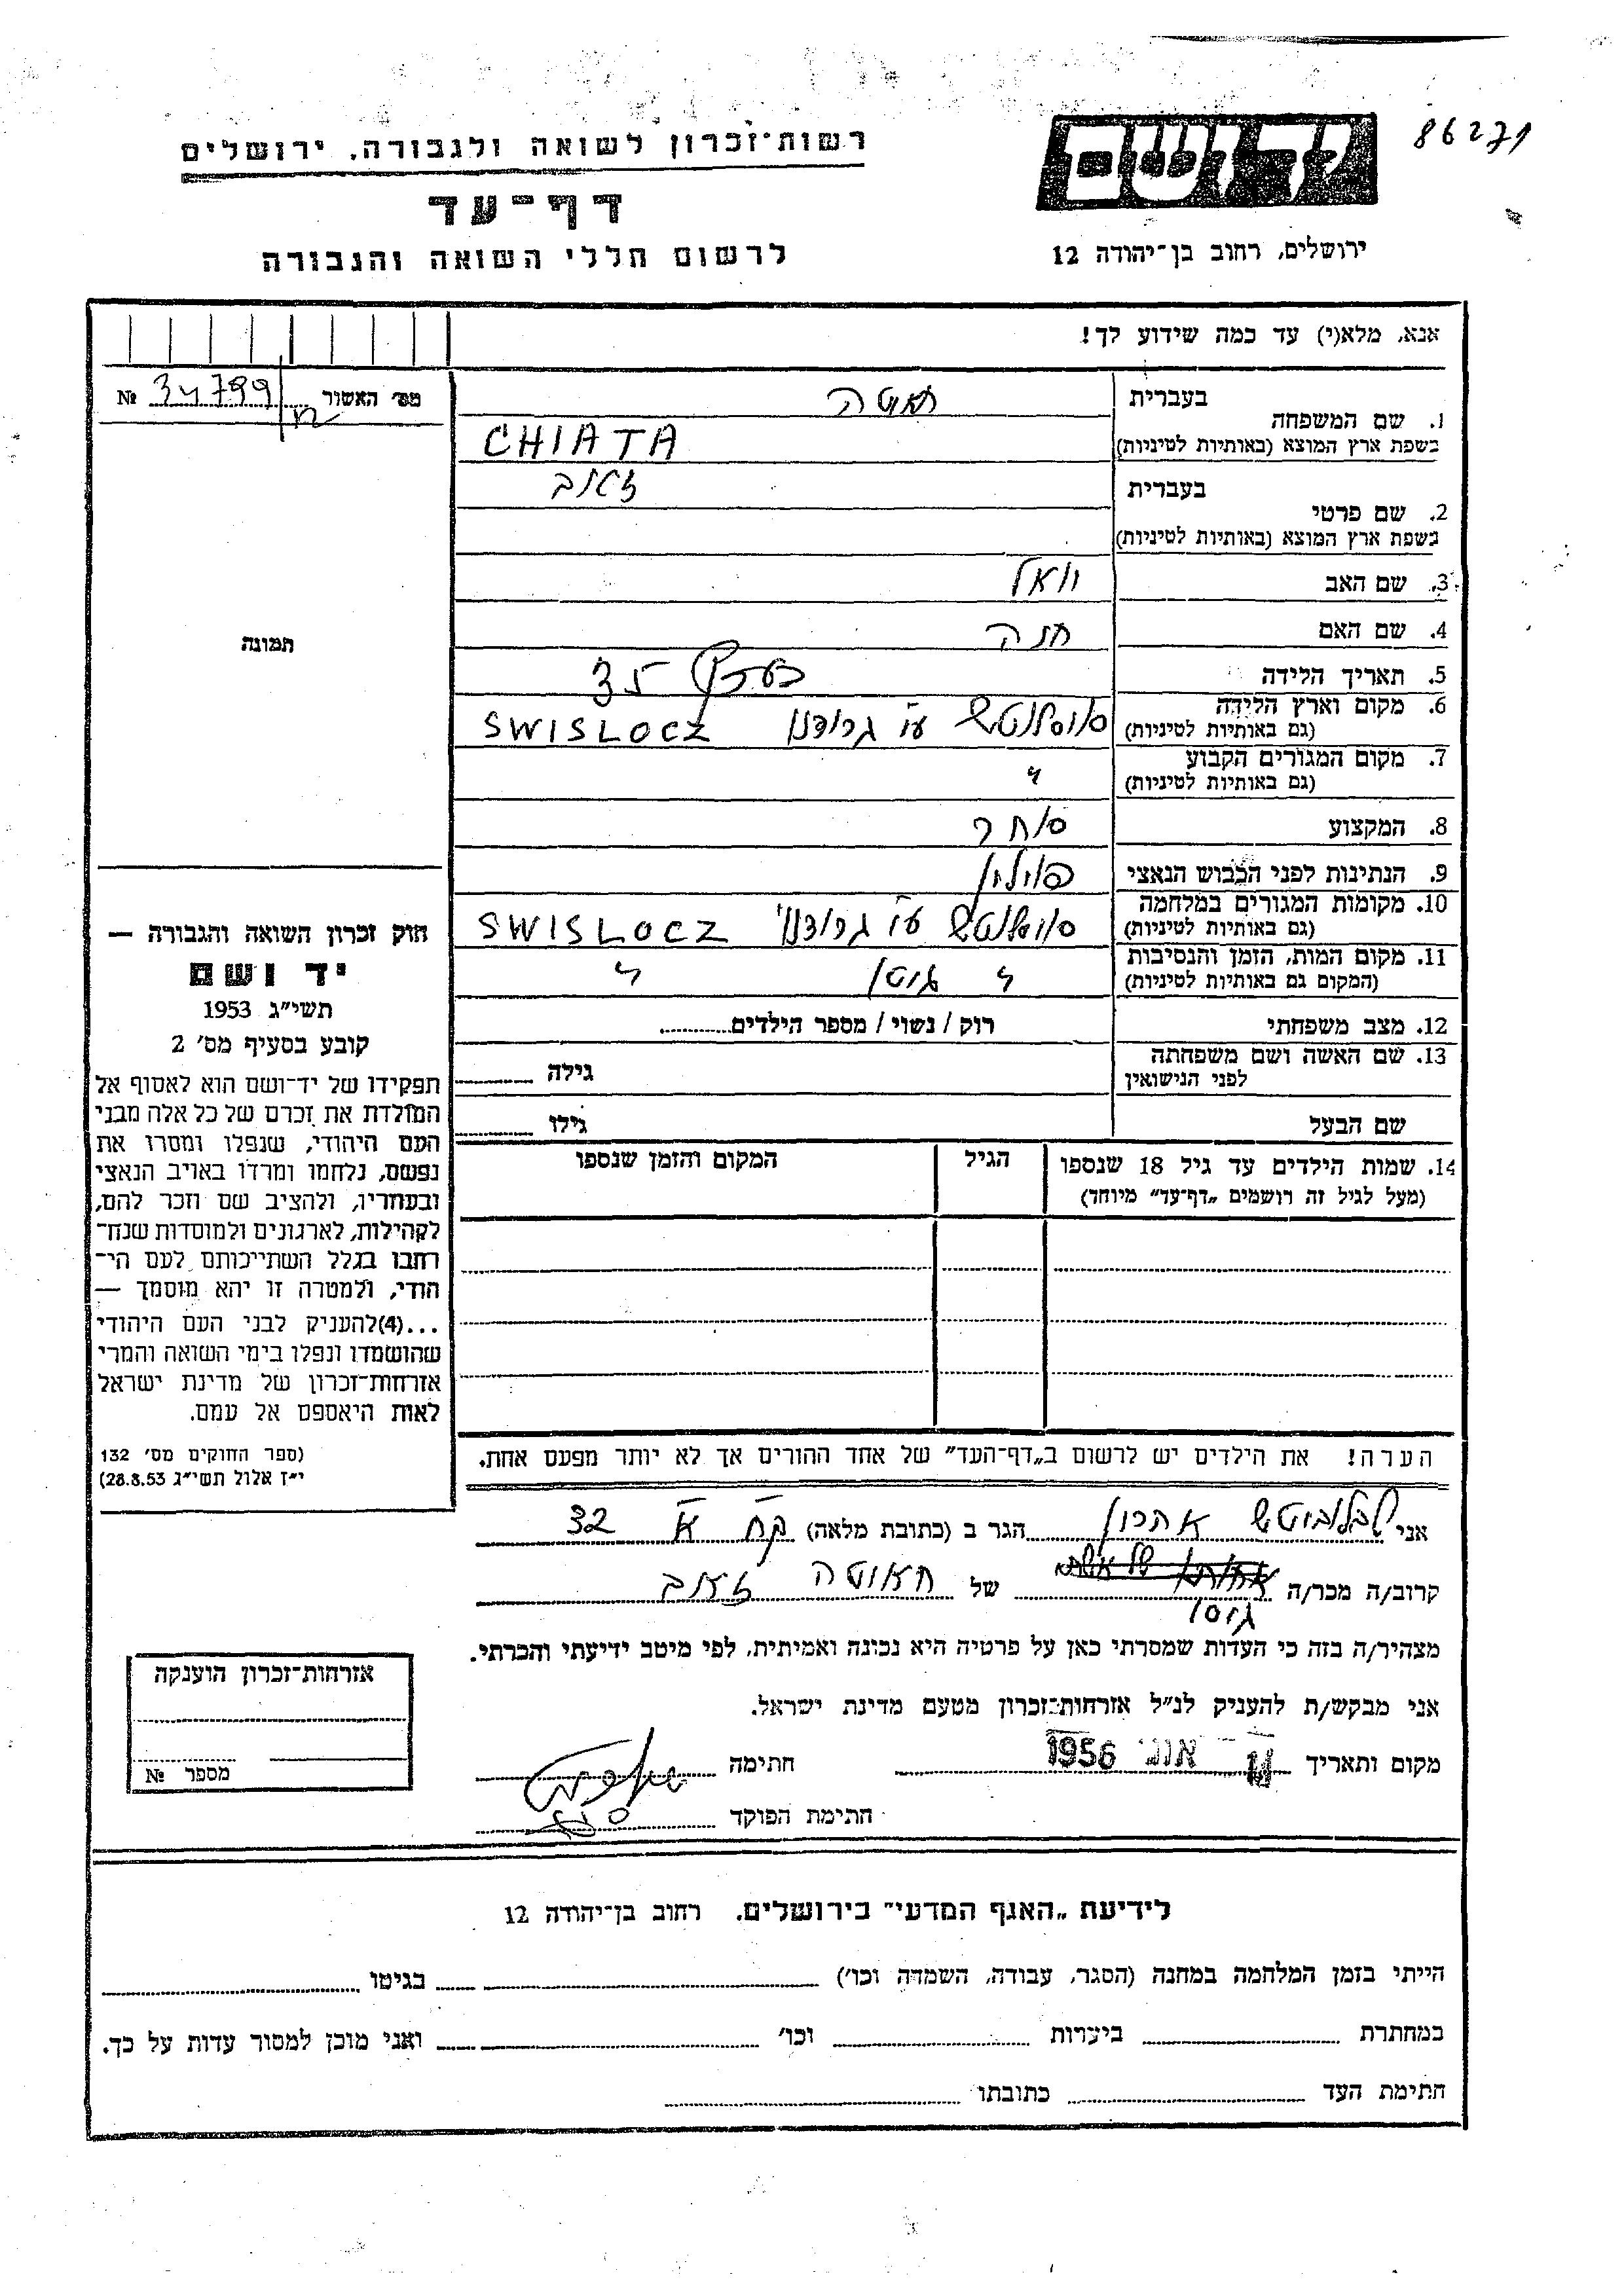 86271
רשות־זכרון לשואה ולגבורה, ירושלים
דף־עד
לרשום חללי השואה והגבורה
יד ושם
ירושלים, רחוב בן־יהודה 12
אנא, מלא(י) עד כמה שידוע לך!
מס׳ האשור № 34799
1. שם המשפחה
בעברית
בשפת ארץ המוצא (באותיות לטיניות) CHIATA
2. שם פרטי
בעברית זאב
בשפת ארץ המוצא (באותיות לטיניות)
3. שם האב יואל
4. שם האם חנה
5. תאריך הלידה בערך 35
6. מקום וארץ הלידה
(גם באותיות לטיניות) ע״י גרודנו SWISLOCZ
7. מקום המגורים הקבוע
(גם באותיות לטיניות) "
8. המקצוע סוחר
9. הנתינות לפני הכבוש הנאצי פולין
10. מקומות המגורים במלחמה
(גם באותיות לטיניות) ע״י גרודנו SWISLOCZ
11. מקום המות, הזמן והנסיבות
(המקום גם באותיות לטיניות) " "
12. מצב משפחתי רוק / נשוי / מספר הילדים
13. שם האשה ושם משפחתה
לפני הנישואין גילה
שם הבעל גילו
14. שמות הילדים עד גיל 18 שנספו הגיל המקום והזמן שנספו
(מעל לגיל זה רושמים „דף־עד״ מיוחד)
הערה! את הילדים יש לרשום ב„דף־העד״ של אחד ההורים אך לא יותר מפעם אחת.
תמונה
חוק זכרון השואה והגבורה —
יד ושם
תשי״ג 1953
קובע בסעיף מס׳ 2
תפקידו של יד־ושם הוא לאסוף אל
המולדת את זכרם של כל אלה מבני
העם היהודי, שנפלו ומסרו את
נפשם, נלחמו ומרדו באויב הנאצי
ובעוזריו, ולהציב שם וזכר להם,
לקהילות, לארגונים ולמוסדות שנח־
רבו בגלל השתייכותם לעם הי־
הודי, ולמטרה זו יהא מוסמך —
...(4)להעניק לבני העם היהודי
שהושמדו ונפלו בימי השואה והמרי
אזרחות־זכרון של מדינת ישראל
לאות היאספם אל עמם.
(ספר החוקים מס׳ 132
י״ז אלול תשי״ג 28.8.53)
אני אהרון הגר ב (כתובת מלאה) 32
קרוב/ה מכר/ה גיסו של זאב
מצהיר/ה בזה כי העדות שמסרתי כאן על פרטיה היא נכונה ואמיתית, לפי מיטב ידיעתי והכרתי.
אני מבקש/ת להעניק לנ״ל אזרחות־זכרון מטעם מדינת ישראל.
מקום ותאריך 1956 חתימה
חתימת הפוקד
אזרחות־זכרון הוענקה
מספר №
לידיעת „האגף המדעי״ בירושלים, רחוב בן־יהודה 12
הייתי בזמן המלחמה במחנה (הסגר, עבודה, השמדה וכו׳) בגיטו
במחתרת ביערות וכו׳ ואני מוכן למסור עדות על כך.
חתימת העד כתובתו